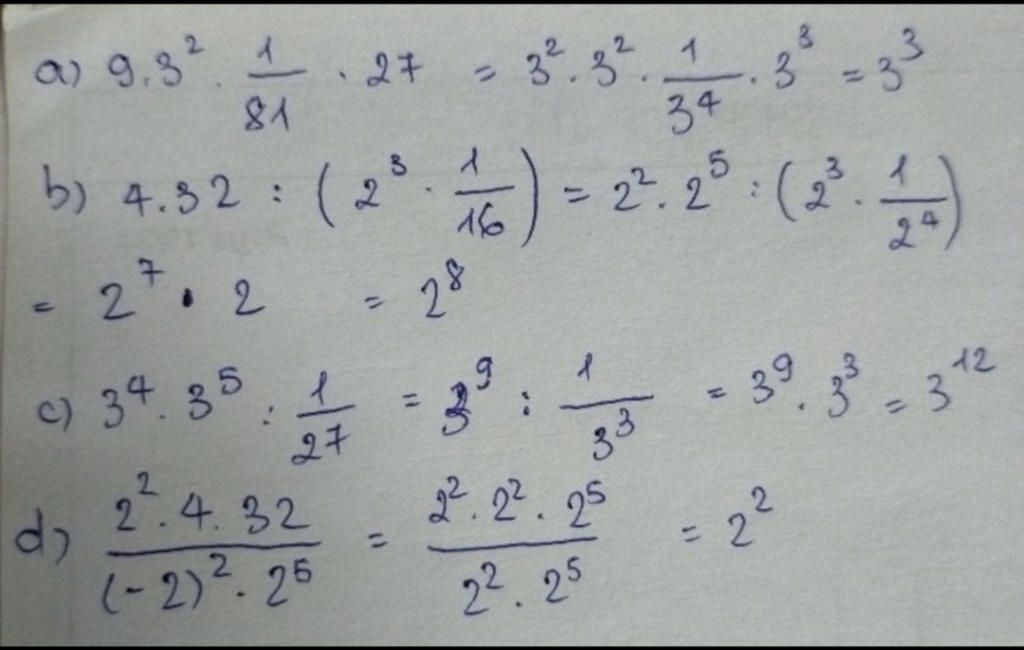 a) 9.3² · 1/81 · 27 = 3² · 3² · 1/3⁴ · 3³ = 3³
b) 4.32 : (2³ · 1/16) = 2² · 2⁵ : (2³ · 1/2⁴)
= 2⁷ · 2 = 2⁸
c) 3⁴ · 3⁵ : 1/27 = 3⁹ : 1/3³ = 3⁹ · 3³ = 3¹²
d) (2² · 4 · 32)/((-2)² · 2⁵) = (2² · 2² · 2⁵)/(2² · 2⁵) = 2²